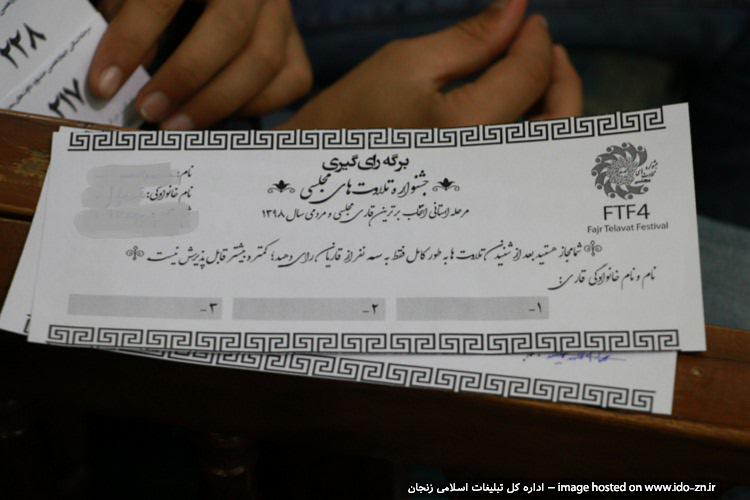 ۲۲۸
۲۱۷
برگه رای گیری
جشنواره تلاوت های مجلسی
مرحله استانی انتخاب برترین قاری مجلسی و مردمی سال ۱۳۹۸
نام:
نام خانوادگی:
FTF4
Fajr Telavat Festival
شما مجاز هستید بعد از شنیدن تلاوت ها به طور کامل فقط به سه نفر از قاریان رای دهید؛ کمتر و بیشتر قابل پذیرش نیست
نام و نام خانوادگی قاری:
۱- ۲- ۳-
اداره کل تبلیغات اسلامی زنجان – image hosted on www.ido-zn.ir